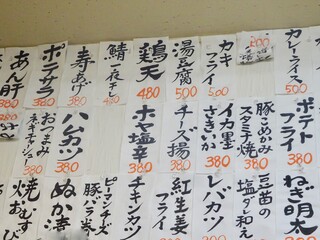 カレーライス
500
カキフライ
500
湯豆腐
500
鶏天
480
鯖一夜干
450
寿あげ
380
ポテサラ
380
あん肝
380
ポテトフライ
380
豚こめかみ
スタミナ焼
380
イカ墨
さきいか
380
チーズ揚
380
ホヤ塩辛
380
ハムカツ
380
おつまみ
ネギチャーシュー
380
ねぎ明太
豆苗の
塩ダレ和え
レバカツ
紅生姜
フライ
チキンカツ
ピーマンチーズ
豚バラ巻
ぬか漬
焼おむすび